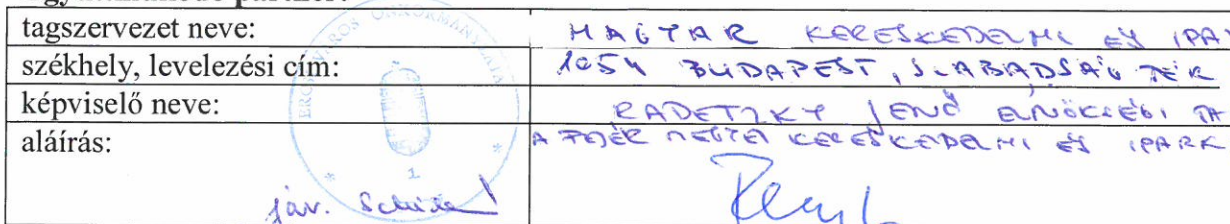 tagszervezet neve: MAGYAR KERESKEDELMI ÉS IPAR
székhely, levelezési cím: 1054 BUDAPEST, SZABADSÁG TÉR
képviselő neve: RADETZKY JENŐ ELNÖKSÉGI TA
A FEJÉR MEGYEI KERESKEDELMI ÉS IPARK
aláírás:
jáv.